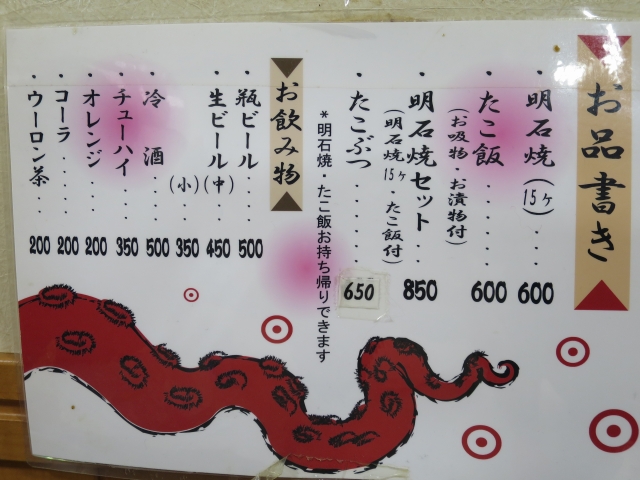 お品書き
・明石焼(15ヶ)・・・600
・たこ飯・・・・・600
(お吸物・お漬物付)
・明石焼セット・・850
(明石焼15ヶ・たこ飯付)
・たこぶつ・・・・・650
*明石焼・たこ飯お持ち帰りできます
お飲み物
・瓶ビール・・・・500
・生ビール(中)・・450
(小)・・350
・冷酒・・・・500
・チューハイ・・・350
・オレンジ・・・・200
・コーラ・・・・・200
・ウーロン茶・・・200